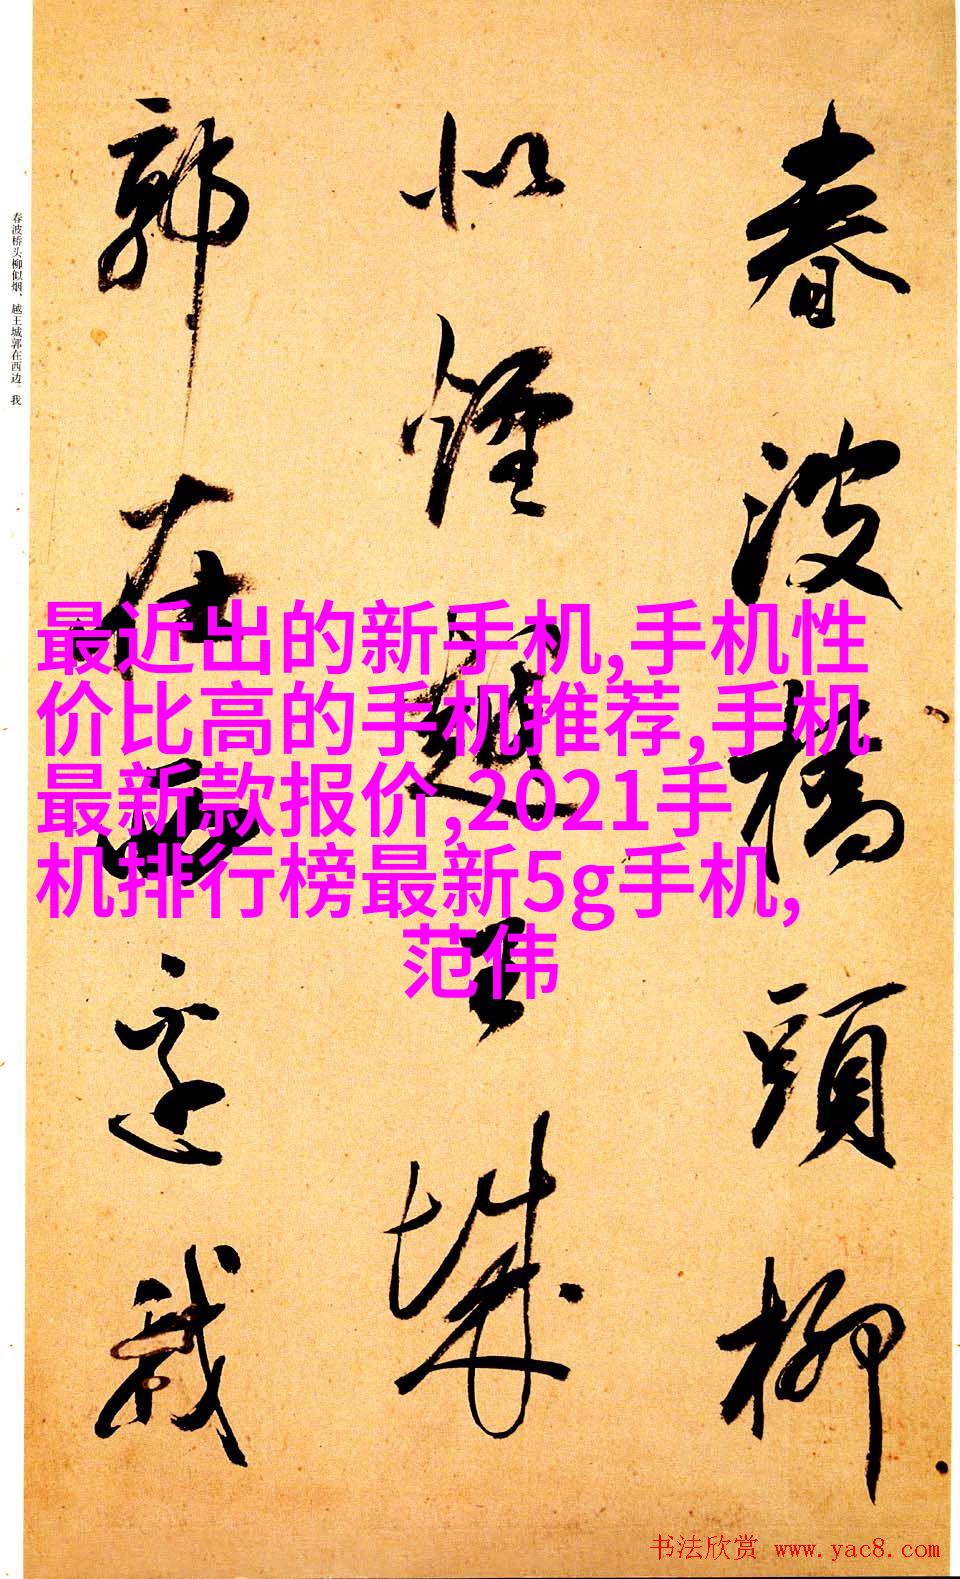 春波橋頭柳
似煙越王城
郭在西邊我
春波桥头柳似烟，越王城郭在西边。我
最近出的新手机,手机性
价比高的手机推荐,手机
最新款报价,2021手
机排行榜最新5g手机,
范伟
书法欣赏 www.yac8.com